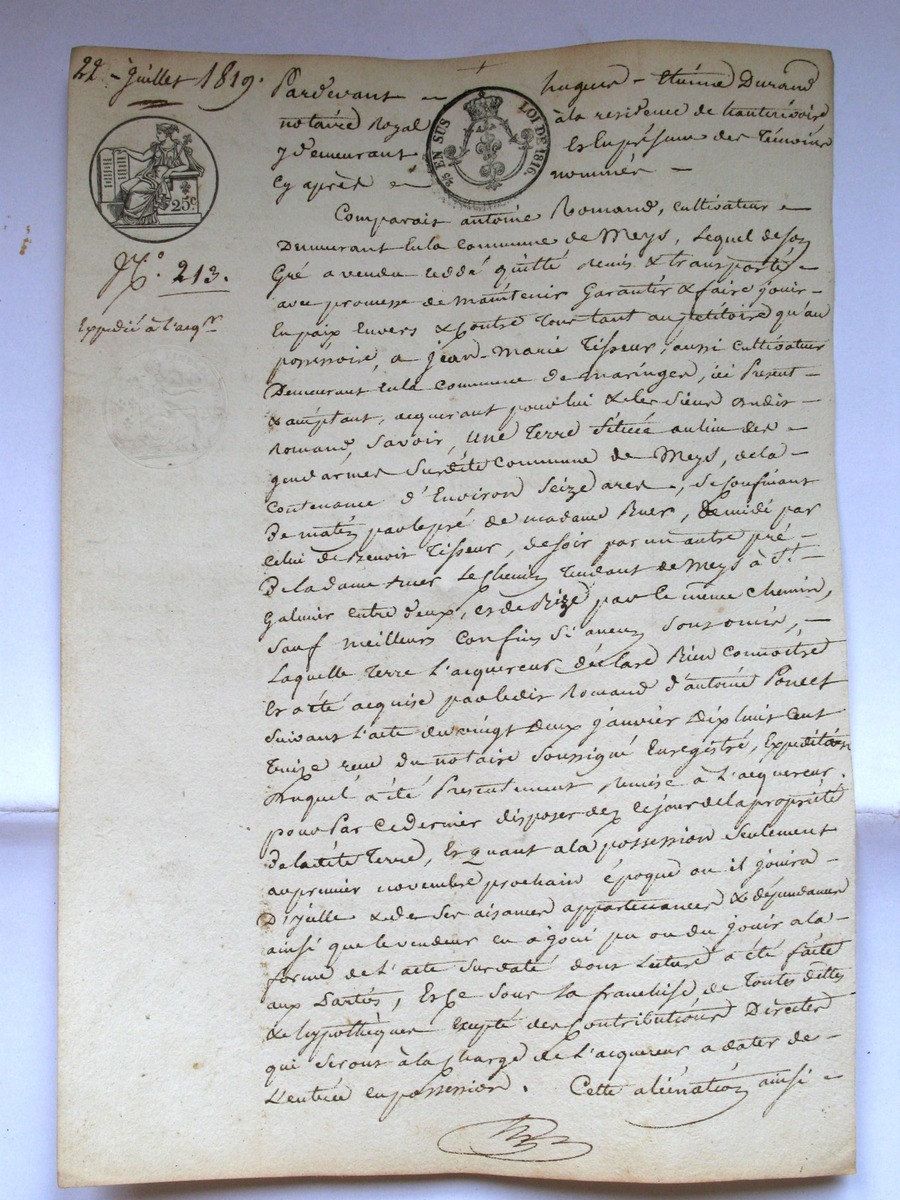 22 juillet 1819.
25c
N.° 213.
Expedié à l'acqr.
⅖ EN SUS LOI DE 1816.
Pardevant hugues Etienne Durand
notaire Royal à la residence de hauterivoire
y demeurant Et En présence des Témoins
cy après nommés
Comparait antoine Romand, Cultivateur
Demeurant En la commune de Meys, Lequel de son
Gré a vendu cédé quitté Remis & transporté
avec promesse de maintenir Garantir & faire jouir
En paix Envers & Contre Tous tant au petitoire qu'au
possessoire, a jean-Marie Tisseur, aussi cultivateur
Demeurant En la commune de maringes, ici Present
& acceptant, acquerant pour lui & les siens dudit
Romand, Savoir, une Terre Située au lieu des
gendarmes Surdite Commune de Meys, de la
Contenance d'Environ Seize ares, Se Confinant
De matin par le pré de madame Ruer, de midi par
Celui de Benoit Tisseur, de soir par un autre pré
De la dame Ruer Le Chemin Tendant de Meys à St.
Galmier entre d'eux, et de Bize par le même Chemin,
Sauf meilleurs Confins Si aucuns Sont omis,
Laquelle Terre L'acquereur déclare Bien Connoitre
Et a été acquise par ledit Romand d'antoine Poncet
Suivant L'acte du vingt Deux janvier Dix huit Cent
Treize recu du notaire Soussigné Enregistré, Expedition
Duquel a été Presentement Remise à L'acquereur.
pour Par Ce dernier disposer dez ce jour de la propriété
De la dite Terre, Et quant a la possession Seulement
au premier novembre prochain époque ou il jouira
D'ycelle & de Ses aisances appartenances & dépendances
ainsi que le vendeur en a joui pu ou du jouir a la
forme de L'acte Surdaté dont Lecture a été faite
aux Parties, Et Ce sous La franchise de Toutes dettes
& hypothèques Excepté des Contributions Directes
qui Seront à la Charge de L'acquereur a dater de
L'entrée en possession. Cette aliénation ainsi